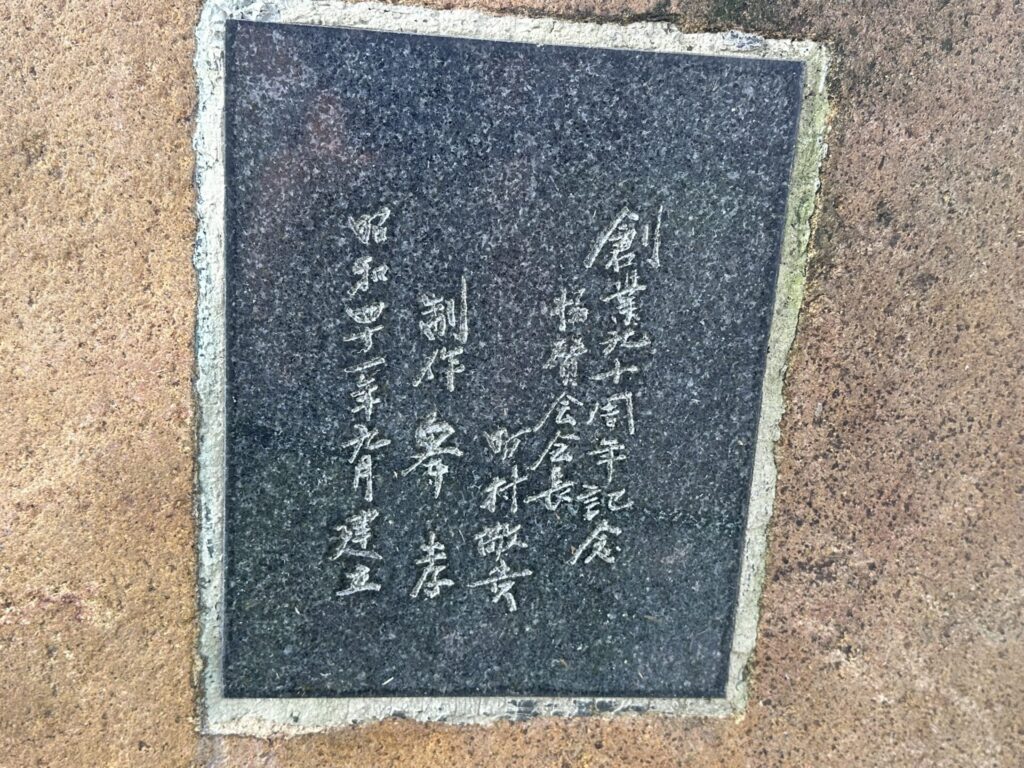 創業九十周年記念
協賛会会長
町村敬貴
制作 峯 孝
昭和四十一年九月建立